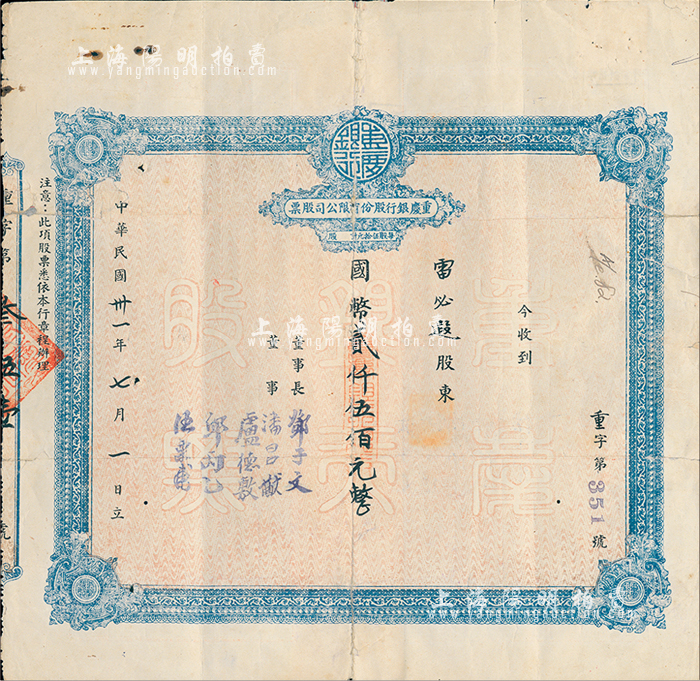 上海陽明拍賣
www.yangmingauction.com
重慶銀行
重慶銀行股份有限公司股票
每股伍拾元 股
No. 82
重字第351號
今收到
雷必 股東
國幣貳仟五佰元整
董事長 鄧子文
董事 潘昌猷
盧德敷
中華民國卅一年七月一日立
注意：此項股票悉依本行章程辦理
重字第叁五壹號
上海陽明拍賣
www.yangmingauction.com
上海陽明拍賣
www.yangmingauction.com